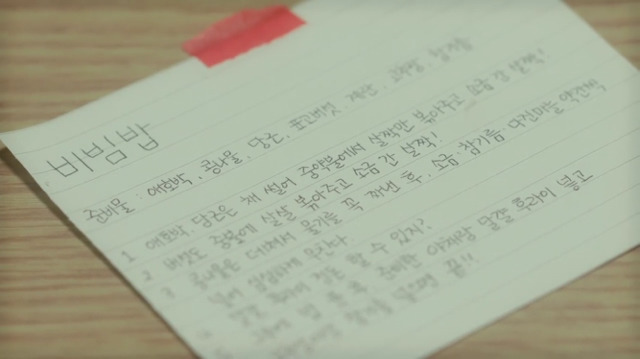 비빔밥
준비물 : 애호박, 콩나물, 당근, 표고버섯, 계란, 고추장, 참기름
1 애호박, 당근은 채 썰어 중약불에서 살짝만 볶아주고 소금 간 살짝!
2 버섯도 중불에 살살 볶아주고 소금 간 살짝!
3 콩나물은 데쳐서 물기를 꼭 짜낸 후, 소금 참기름 다진마늘 약간씩
넣어 살살 무친다.
계란 후라이 정도 할 수 있지?
그릇에 밥 푹 푹 준비한 야채랑 달걀 후라이 넣고
참기름 넣으면 끝!!